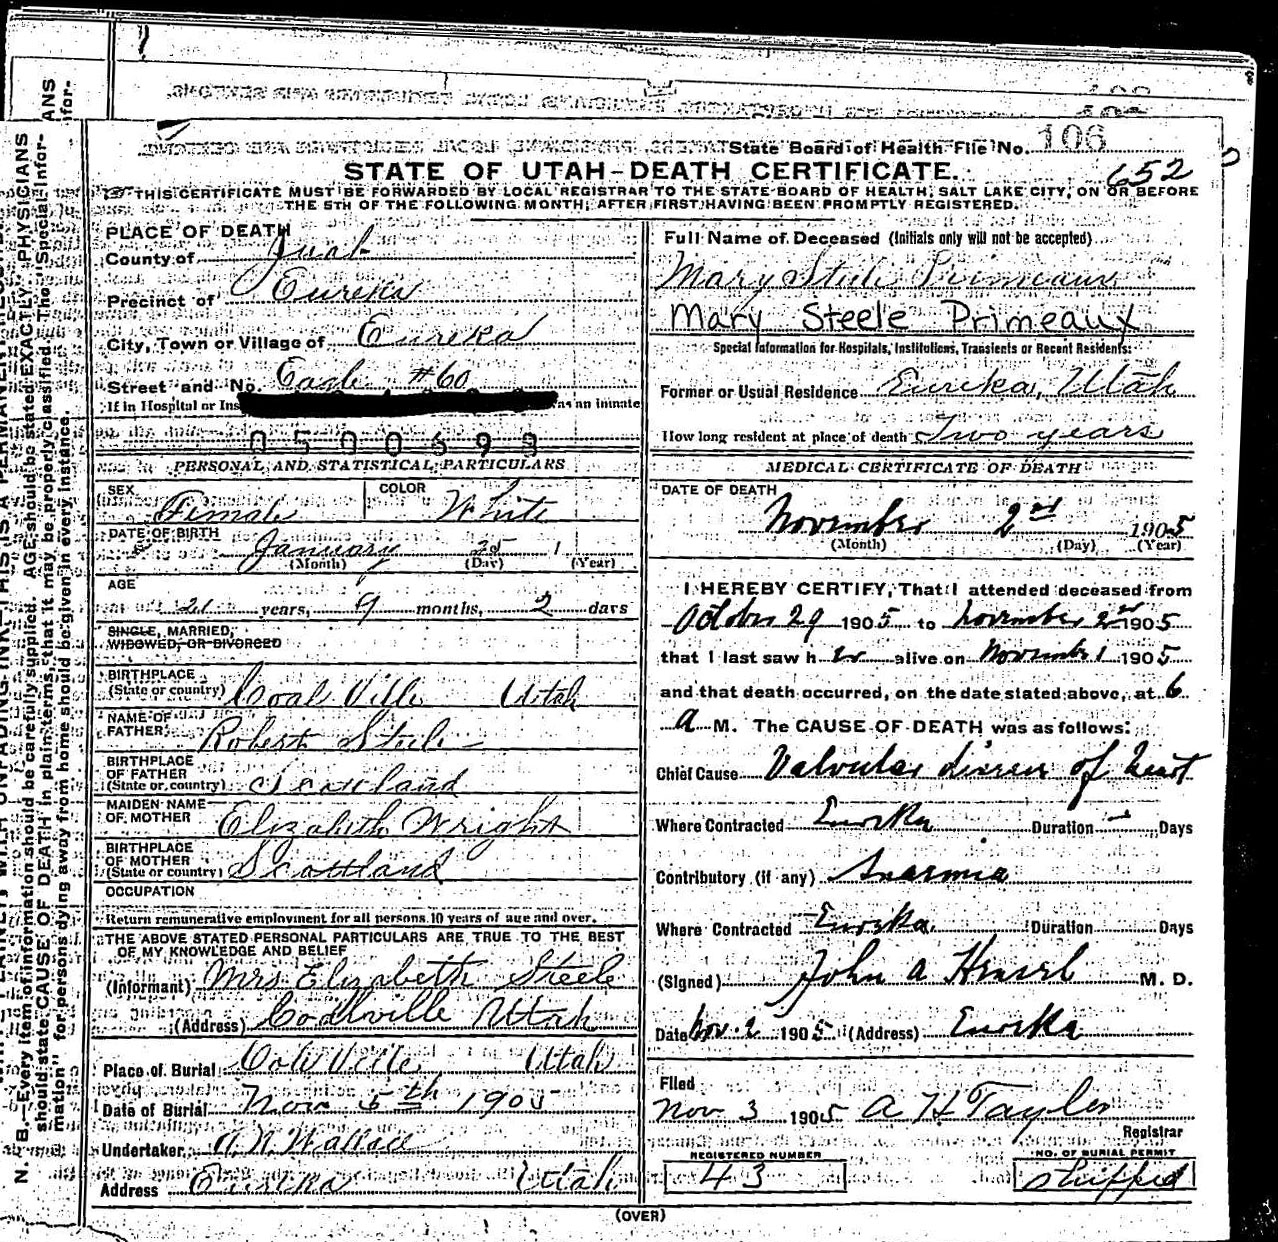 State Board of Health File No. 106
652
STATE OF UTAH-DEATH CERTIFICATE.
THIS CERTIFICATE MUST BE FORWARDED BY LOCAL REGISTRAR TO THE STATE BOARD OF HEALTH, SALT LAKE CITY, ON OR BEFORE
THE 5TH OF THE FOLLOWING MONTH, AFTER FIRST HAVING BEEN PROMPTLY REGISTERED.
PLACE OF DEATH
County of Juab
Precinct of Eureka
City, Town or Village of Eureka
Street and No. Eagle #60
If in Hospital or Ins as an inmate
0500699
PERSONAL AND STATISTICAL PARTICULARS
SEX Female COLOR White
DATE OF BIRTH January 25 1
(Month) (Day) (Year)
AGE
21 years, 9 months, 2 days
SINGLE, MARRIED,
WIDOWED, OR DIVORCED
BIRTHPLACE
(State or country) Coal Ville Utah
NAME OF
FATHER Robert Steele
BIRTHPLACE
OF FATHER
(State or country) Scotland
MAIDEN NAME
OF MOTHER Elizabeth Wright
BIRTHPLACE
OF MOTHER
(State or country) Scottland
OCCUPATION
Return remunerative employment for all persons 10 years of age and over.
THE ABOVE STATED PERSONAL PARTICULARS ARE TRUE TO THE BEST
OF MY KNOWLEDGE AND BELIEF
(Informant) Mrs Elizabeth Steele
(Address) Coalville Utah
Place of Burial Utah
Date of Burial Nov 5th 1905
Undertaker Wallace
Address Eureka Utah
Full Name of Deceased (Initials only will not be accepted)
Mary Steele Primeaux
Mary Steele Primeaux
Special Information for Hospitals, Institutions, Transients or Recent Residents:
Former or Usual Residence Eureka, Utah
How long resident at place of death Two years
MEDICAL CERTIFICATE OF DEATH
DATE OF DEATH
November 2nd 1905
(Month) (Day) (Year)
I HEREBY CERTIFY, That I attended deceased from
October 29 1905 to November 2nd 1905
that I last saw her alive on November 1 1905
and that death occurred, on the date stated above, at 6
a M. The CAUSE OF DEATH was as follows:
Chief Cause Valvular disease of heart
Where Contracted Eureka Duration - Days
Contributory (if any) Anaemia
Where Contracted Eureka Duration Days
(Signed) John A Hensel M. D.
Date Nov. 2 1905 (Address) Eureka
Filed
Nov 3 1905 A H Taylor
Registrar
REGISTERED NUMBER
43
NO. OF BURIAL PERMIT
shipped
(OVER)
N. B.—Every item of information should be carefully supplied. AGE should be stated EXACTLY. PHYSICIANS
should state CAUSE OF DEATH in plain terms, that it may be properly classified. The "Special Infor-
mation" for persons dying away from home should be given in every instance.